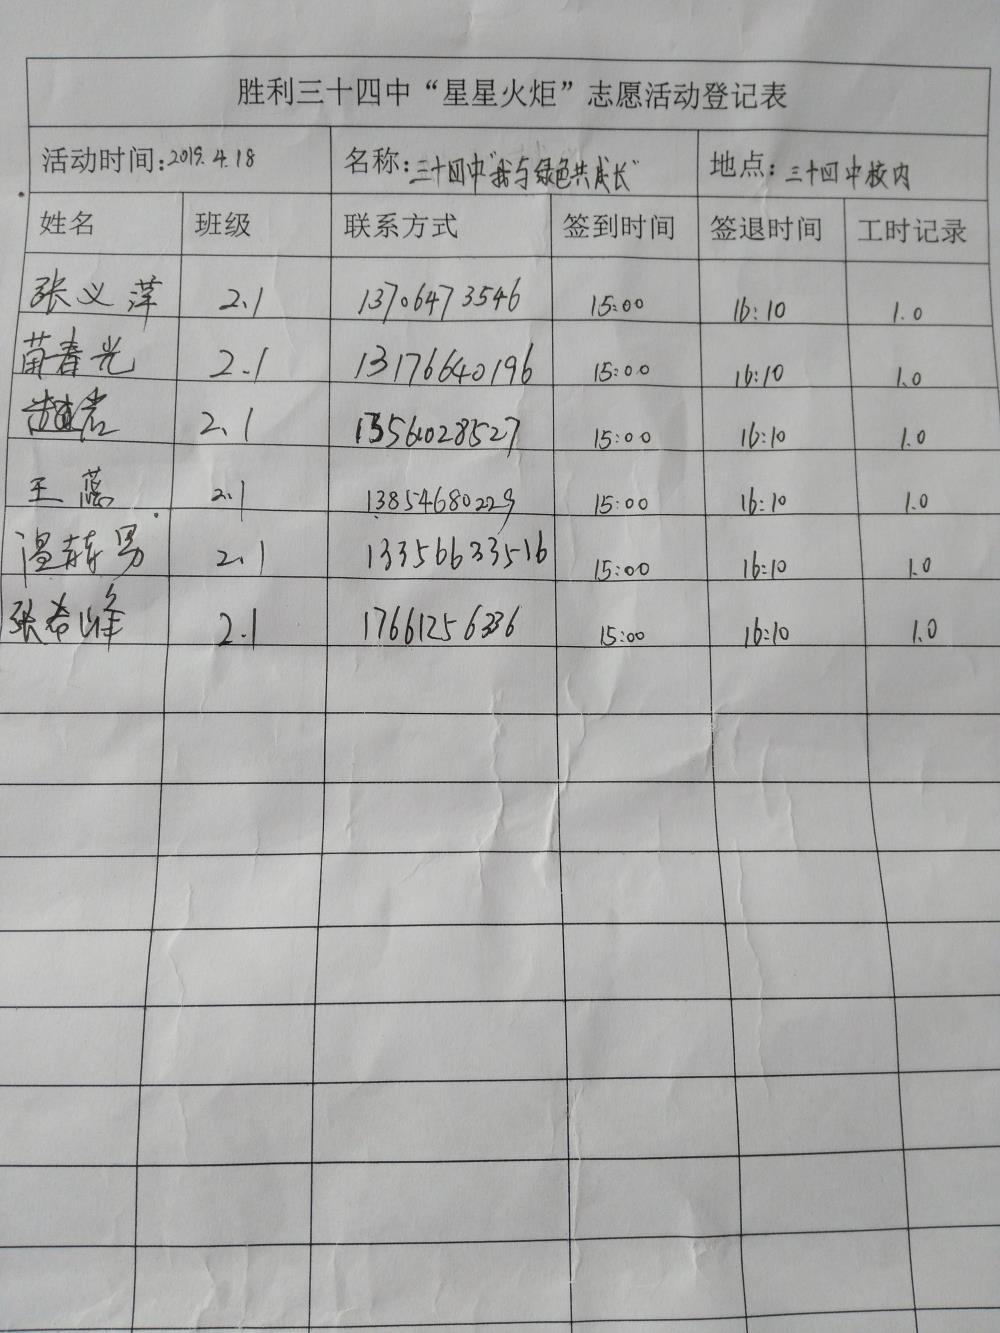 胜利三十四中“星星火炬”志愿活动登记表
活动时间:2019.4.18 名称:三十四中“我与绿色共成长” 地点:三十四中校内
姓名 班级 联系方式 签到时间 签退时间 工时记录
张义萍 2.1 13706473546 15:00 16:10 1.0
苗春光 2.1 13176640196 15:00 16:10 1.0
2.1 13561028527 15:00 16:10 1.0
王蕊 2.1 13854680229 15:00 16:10 1.0
温 男 2.1 13356633516 15:00 16:10 1.0
张希峰 2.1 17661256336 15:00 16:10 1.0